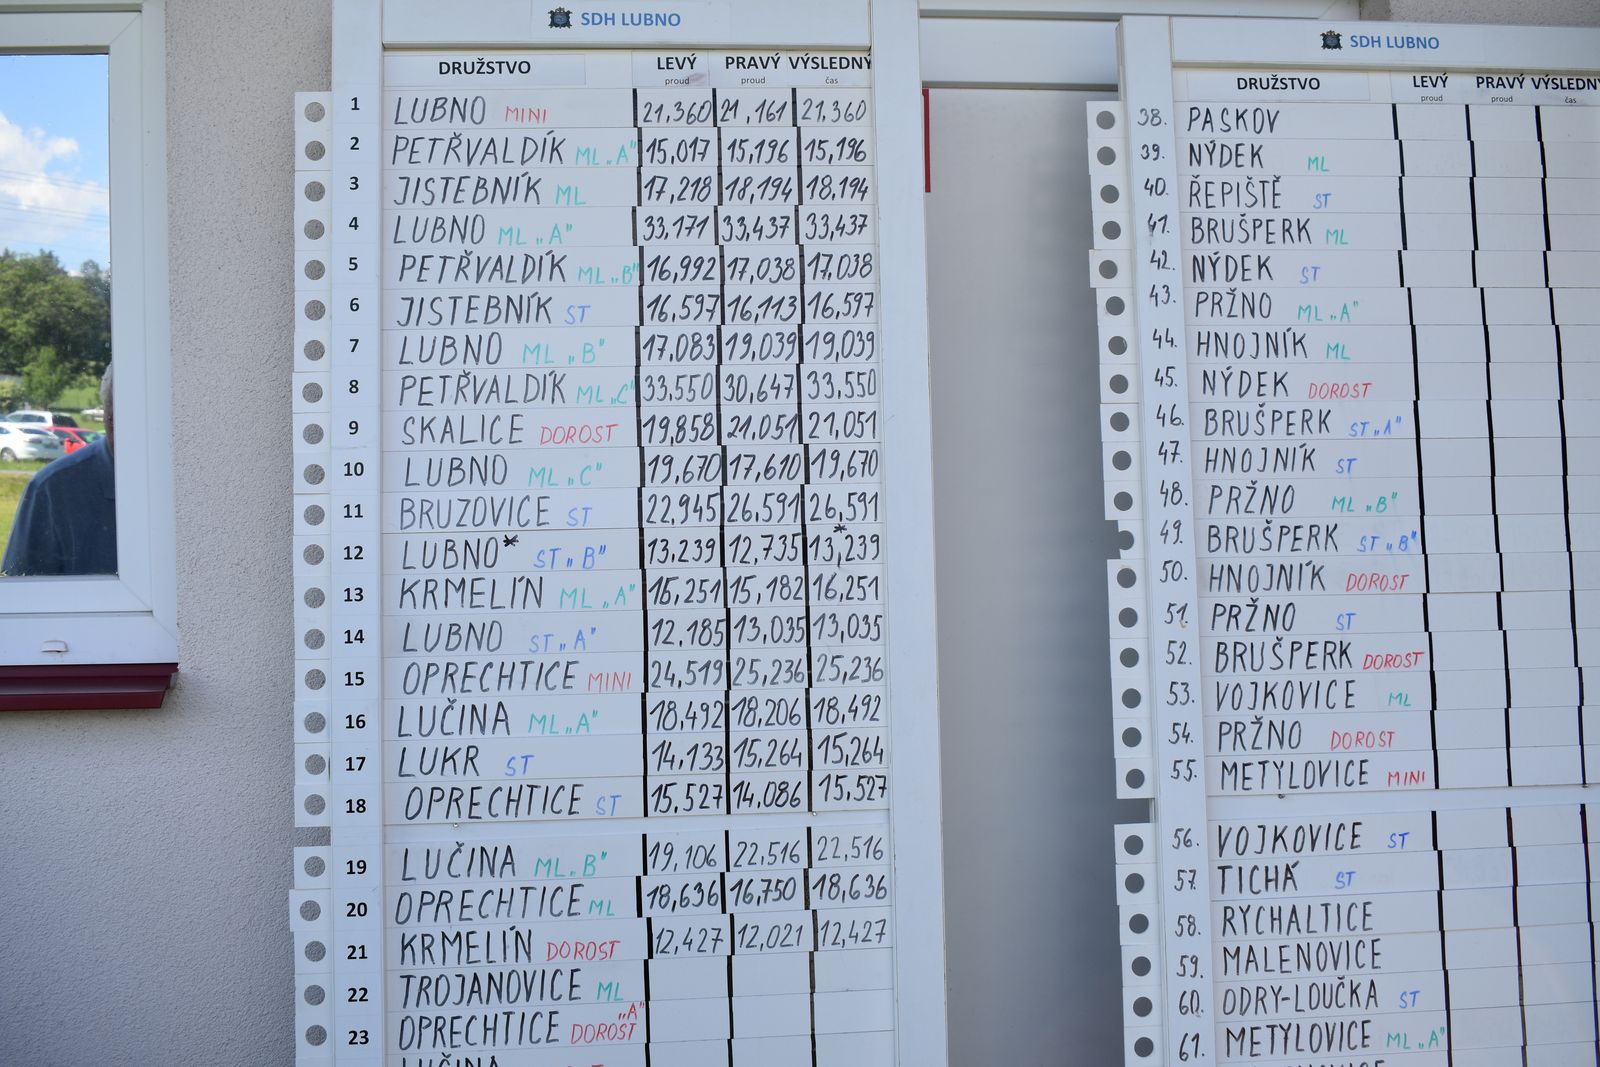 SDH LUBNO
DRUŽSTVO LEVÝ PRAVÝ VÝSLEDNÝ
proud proud čas
1 LUBNO MINI 21,360 21,161 21,360
2 PETŘVALDÍK ML„A" 15,017 15,196 15,196
3 JISTEBNÍK ML 17,218 18,194 18,194
4 LUBNO ML„A" 33,171 33,437 33,437
5 PETŘVALDÍK ML„B" 16,992 17,038 17,038
6 JISTEBNÍK ST 16,597 16,113 16,597
7 LUBNO ML„B" 17,083 19,039 19,039
8 PETŘVALDÍK ML„C" 33,550 30,647 33,550
9 SKALICE DOROST 19,858 21,051 21,051
10 LUBNO ML„C" 19,670 17,610 19,670
11 BRUZOVICE ST 22,945 26,591 26,591
12 LUBNO* ST„B" 13,239 12,735 13,239*
13 KRMELÍN ML„A" 16,251 15,182 16,251
14 LUBNO ST„A" 12,185 13,035 13,035
15 OPRECHTICE MINI 24,519 25,236 25,236
16 LUČINA ML„A" 18,492 18,206 18,492
17 LUKR ST 14,133 15,264 15,264
18 OPRECHTICE ST 15,527 14,086 15,527
19 LUČINA ML„B" 19,106 22,516 22,516
20 OPRECHTICE ML 18,636 16,750 18,636
21 KRMELÍN DOROST 12,427 12,021 12,427
22 TROJANOVICE ML
23 OPRECHTICE DOROST „A"
LUČINA
SDH LUBNO
DRUŽSTVO LEVÝ PRAVÝ VÝSLEDNÝ
proud proud čas
38. PASKOV
39. NÝDEK ML
40. ŘEPIŠTĚ ST
41. BRUŠPERK ML
42. NÝDEK ST
43. PRŽNO ML„A"
44. HNOJNÍK ML
45. NÝDEK DOROST
46. BRUŠPERK ST„A"
47. HNOJNÍK ST
48. PRŽNO ML„B"
49. BRUŠPERK ST„B"
50. HNOJNÍK DOROST
51. PRŽNO ST
52. BRUŠPERK DOROST
53. VOJKOVICE ML
54. PRŽNO DOROST
55. METYLOVICE MINI
56. VOJKOVICE ST
57. TICHÁ ST
58. RYCHALTICE
59. MALENOVICE
60. ODRY-LOUČKA ST
61. METYLOVICE ML„A"